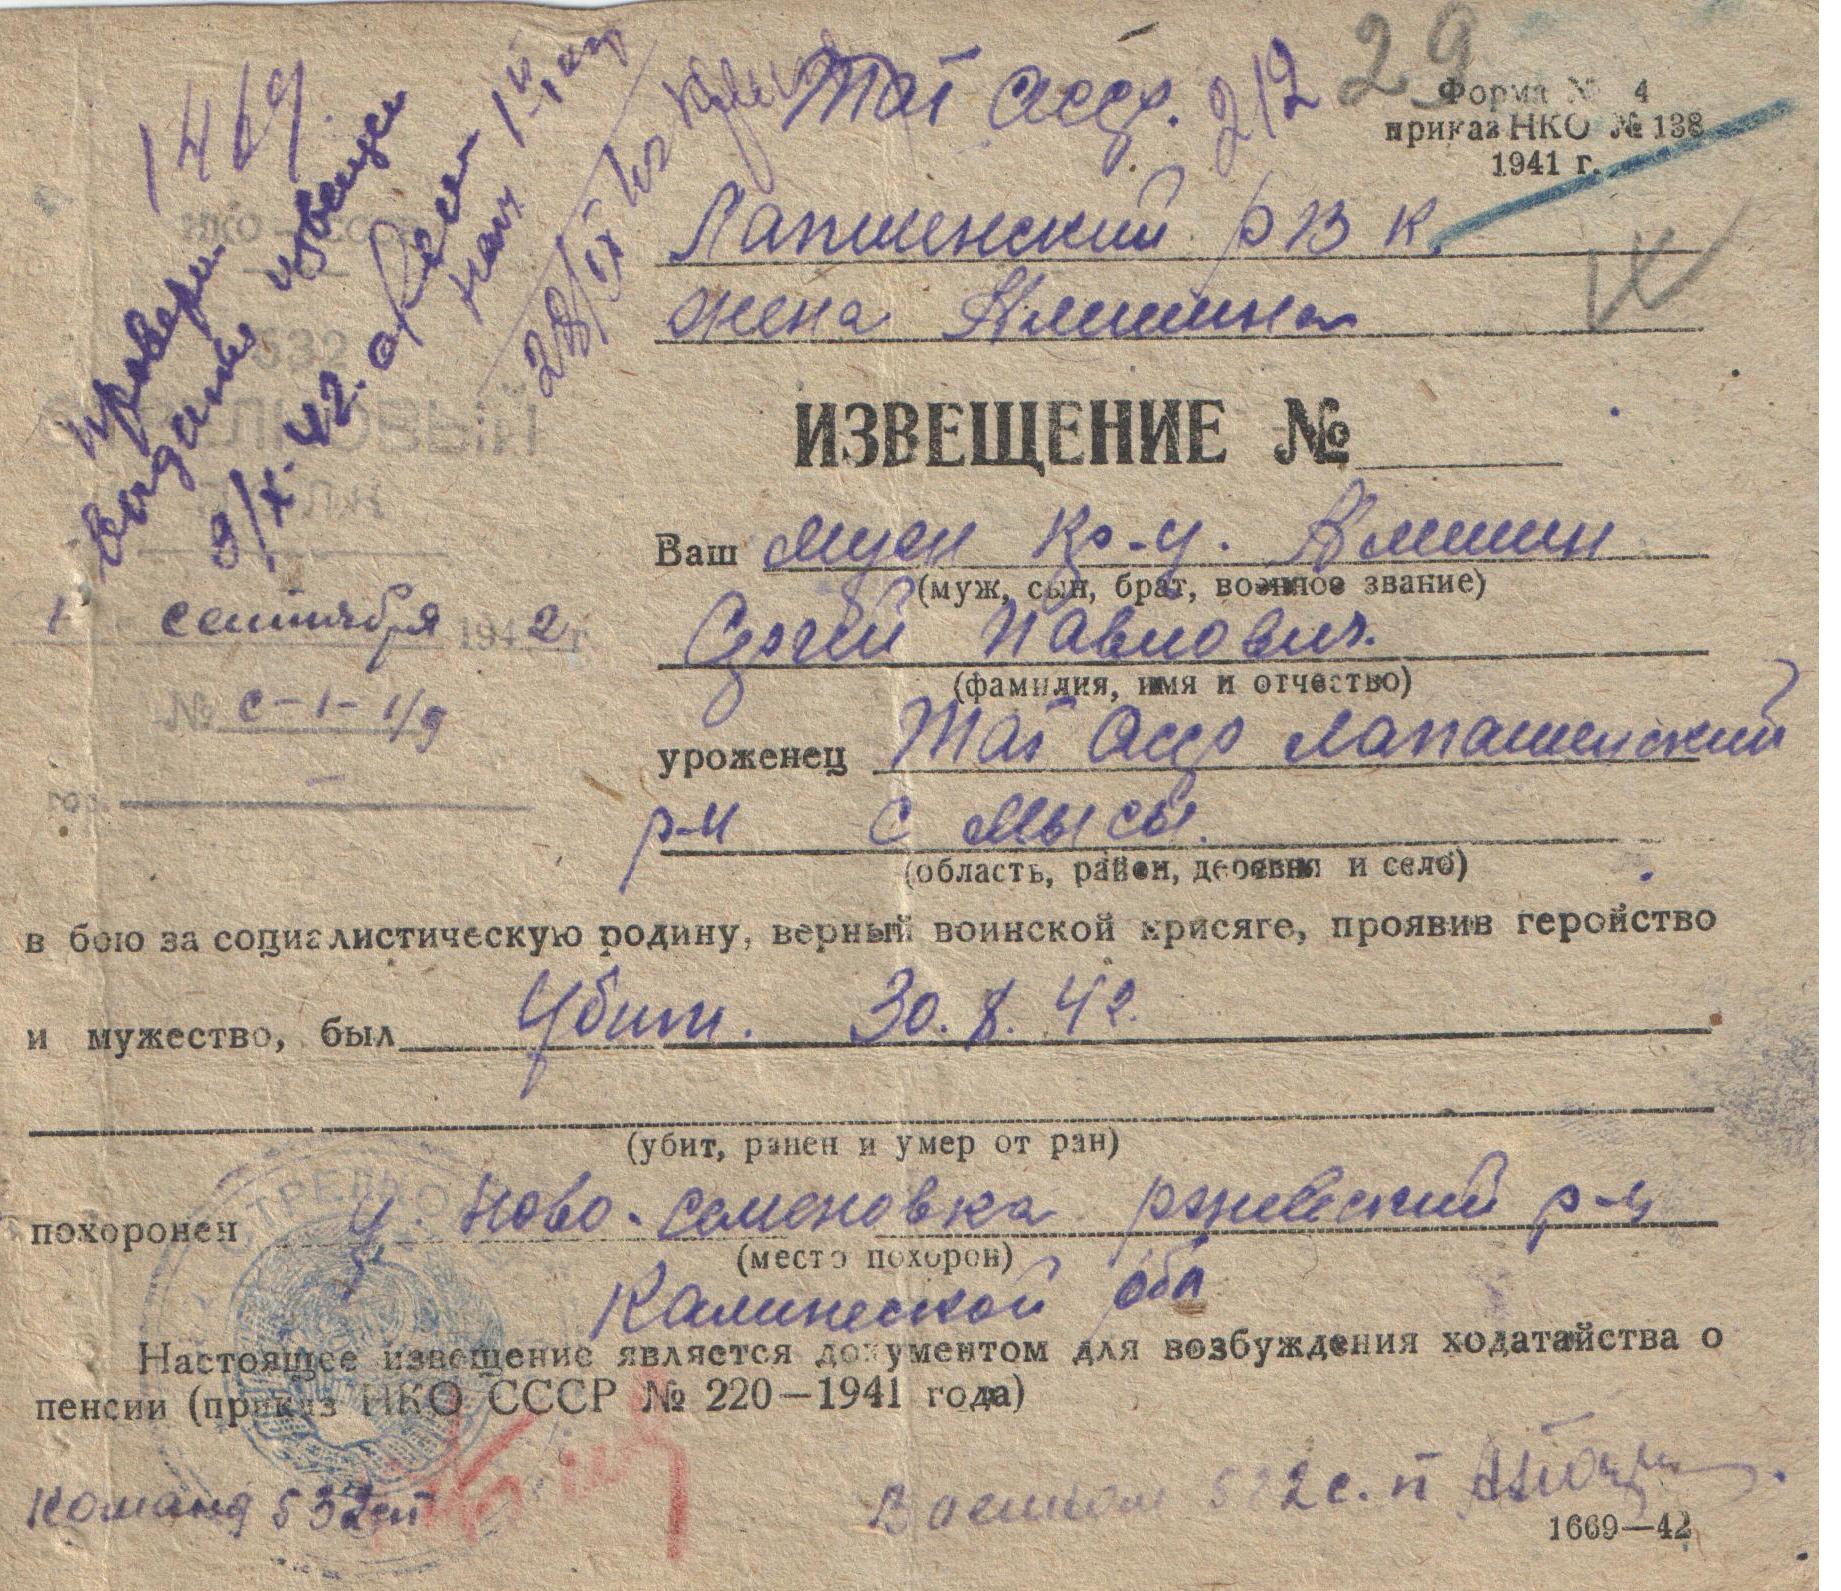 1469
Тат Асср. 212 29
Форма № 4
приказ НКО № 138
1941 г.
НКО – СССР
Лапшенский РВК.
жена Алишина
532
СТРЕЛКОВЫЙ
ПОЛК
28/IX 42
9/X-42г.
ИЗВЕЩЕНИЕ №
Ваш муж кр-ц. Алишин
(муж, сын, брат, военное звание)
1 сентября 1942 г
Сергей Павлович.
(фамилия, имя и отчество)
№ с-1-1/9
уроженец Тат Асср Лапашенский
гор.
р-н с Мысы.
(область, район, деревня и село)
в бою за социалистическую родину, верный воинской присяге, проявив геройство
и мужество, был Убит. 30.8.42.
(убит, ранен и умер от ран)
похоронен д. Ново-Семеновка Ржевский р-н
(место похорон)
Калинеской обл
Настоящее извещение является документом для возбуждения ходатайства о
пенсии (приказ НКО СССР № 220—1941 года)
Команд 532 сп
Военком 532 с.п
1669—42